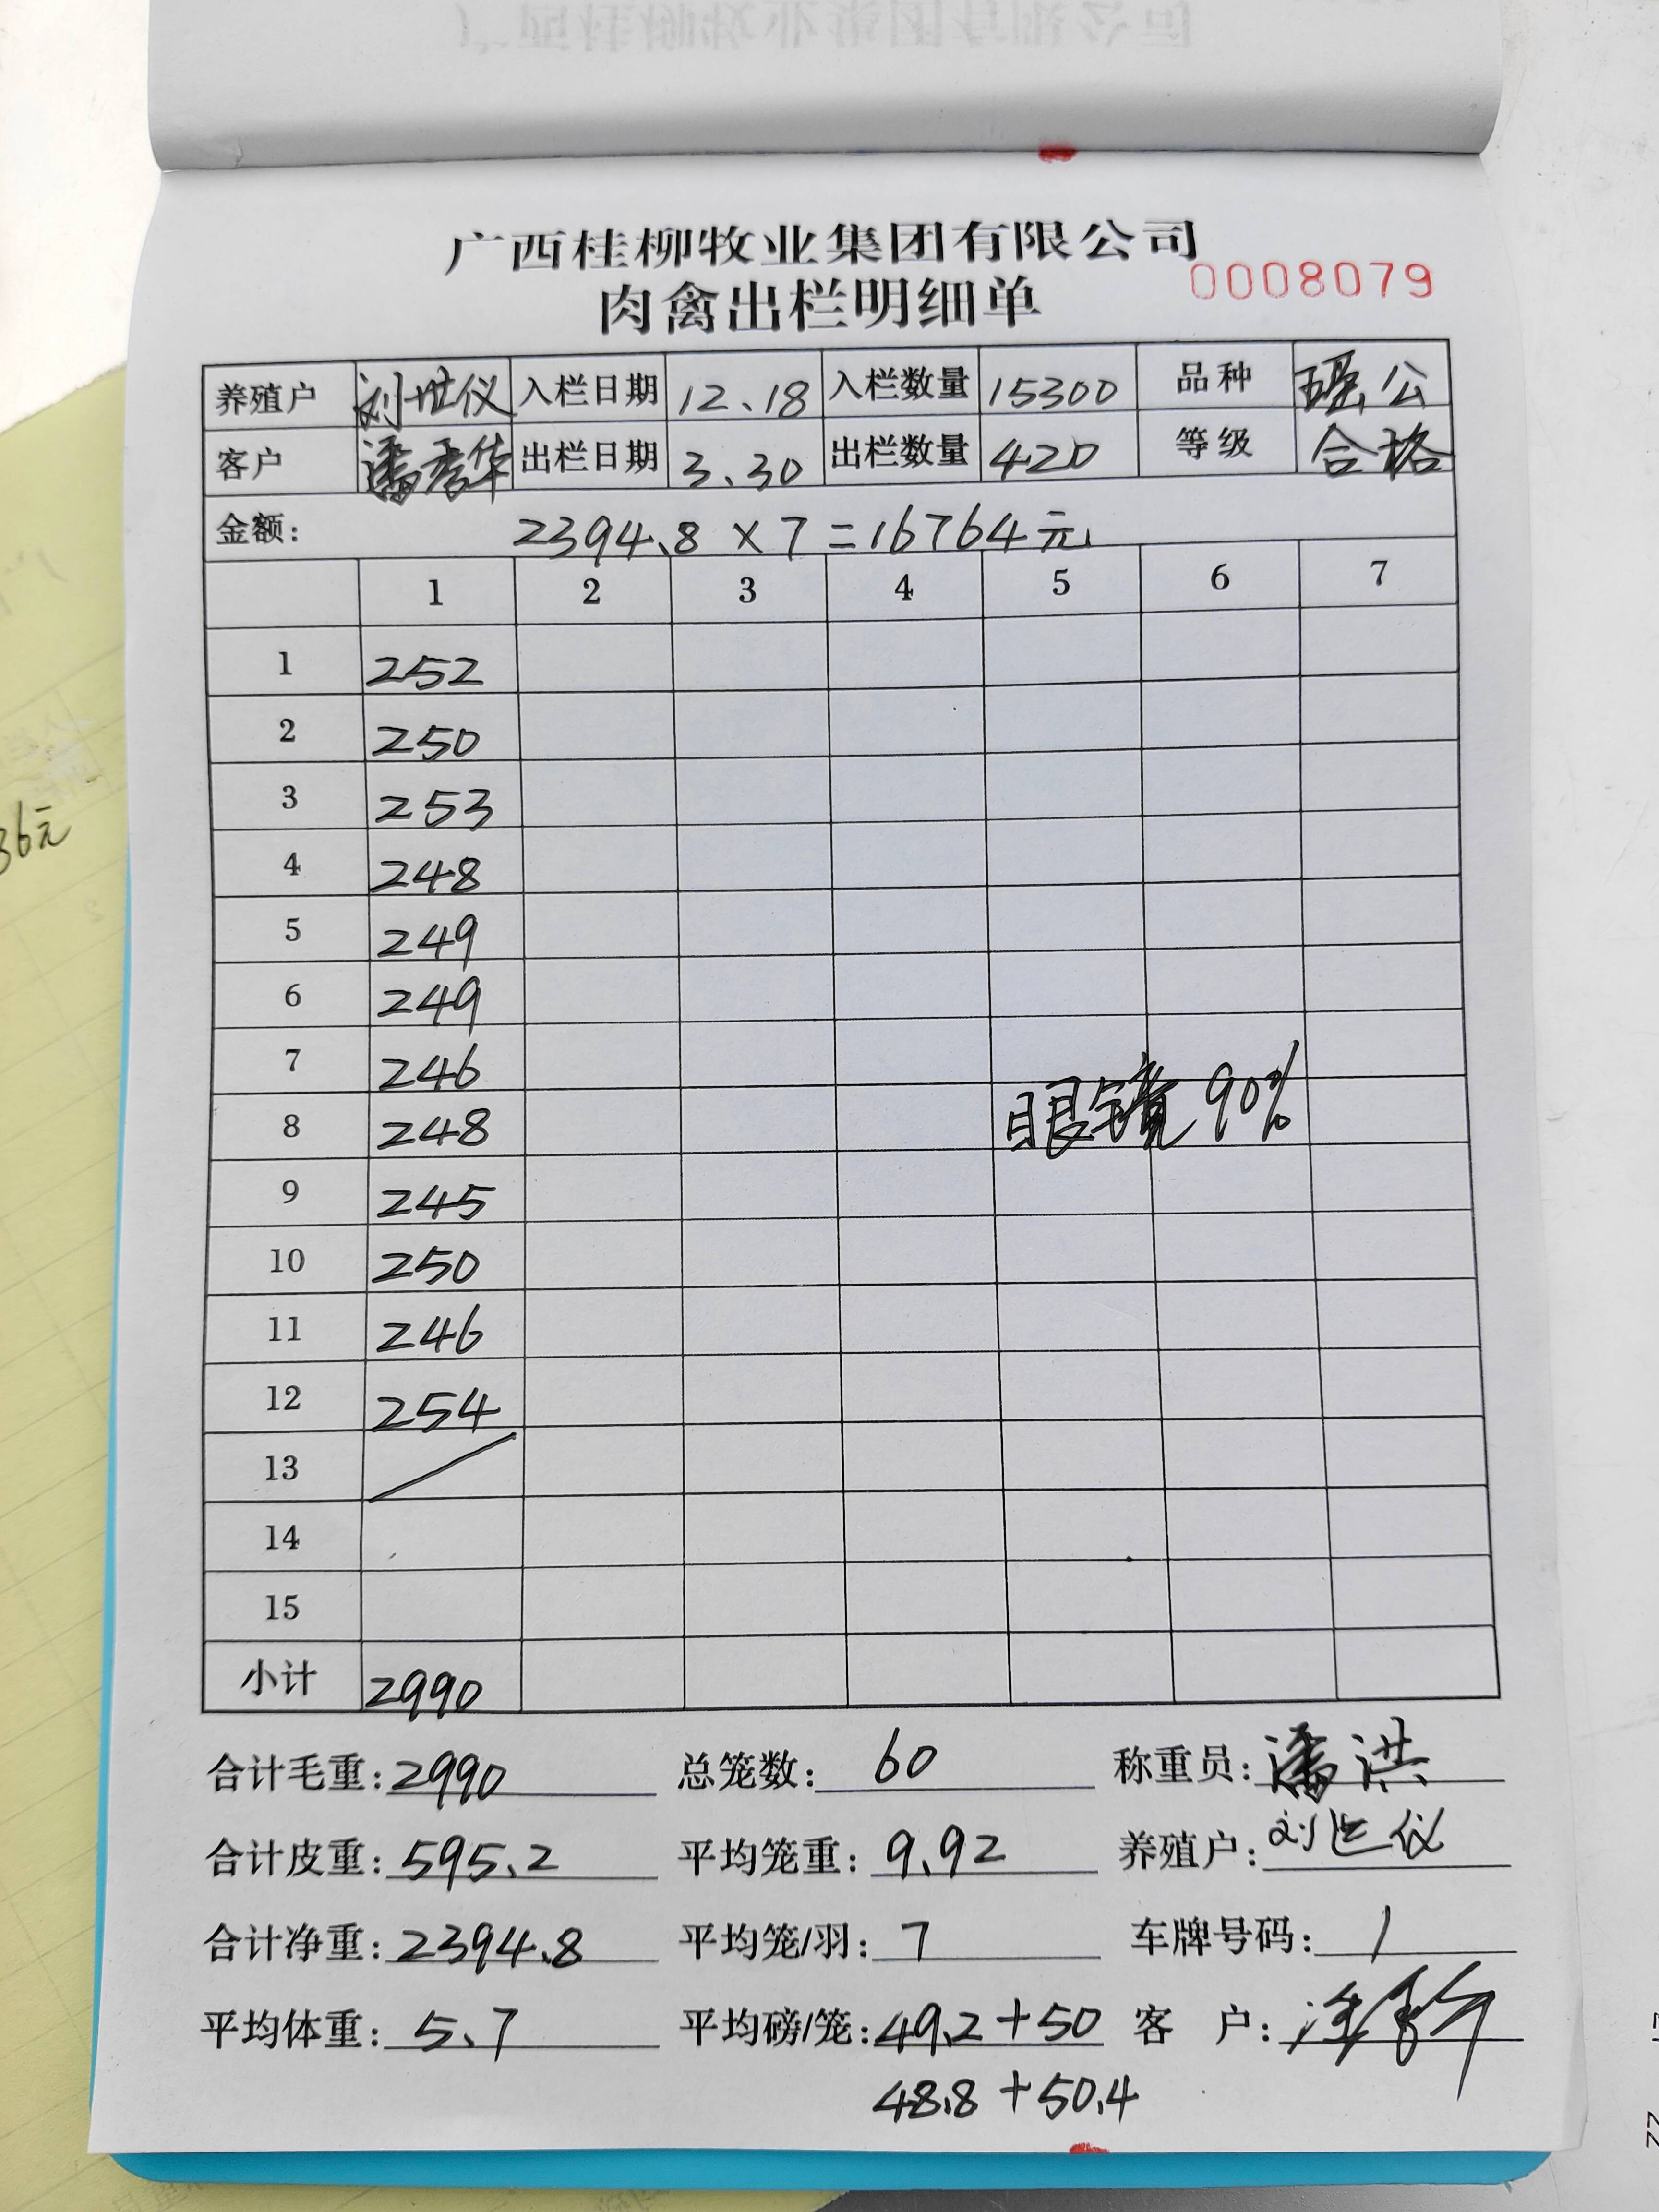 广西桂柳牧业集团有限公司
肉禽出栏明细单 0008079
养殖户 刘世仪 入栏日期 12.18 入栏数量 15300 品种 瑶公
客户 潘秀华 出栏日期 3.30 出栏数量 420 等级 合格
金额: 2394.8 × 7 = 16764元
1 2 3 4 5 6 7
1 252
2 250
3 253
4 248
5 249
6 249
7 246
8 248 眼镜 90%
9 245
10 250
11 246
12 254
13
14
15
小计 2990
合计毛重: 2990 总笼数: 60 称重员: 潘洪
合计皮重: 595.2 平均笼重: 9.92 养殖户: 刘世仪
合计净重: 2394.8 平均笼/羽: 7 车牌号码: /
平均体重: 5.7 平均磅/笼: 49.2+50 客 户:
48.8+50.4
36元